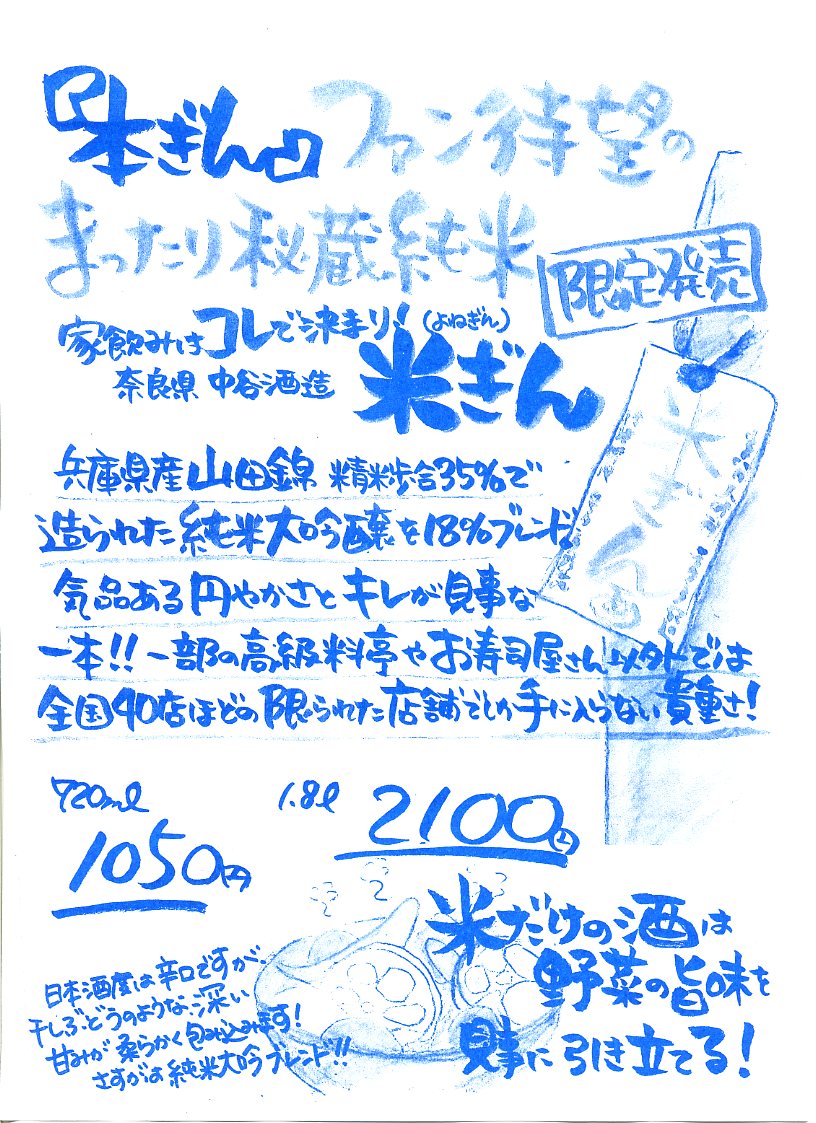 『本ぎん』ファン待望の
まったり秘蔵純米
限定発売
家飲みはコレで決まり!(よねぎん)
奈良県 中谷酒造 米ぎん
米ぎん
兵庫県産山田錦 精米歩合35%で
造られた純米大吟醸を18%ブレンド。
気品ある円やかさとキレが見事な
一本!!一部の高級料亭やお寿司屋さん以外では
全国40店ほどの限られた店舗でしか手に入らない貴重さ!
720ml
1050円
1.8l
2100円
米だけの酒は
野菜の旨味を
見事に引き立てる!
日本酒度は辛口ですが、
干しぶどうのような深い
甘みが柔らかく包み込みます!
さすがは純米大吟ブレンド!!